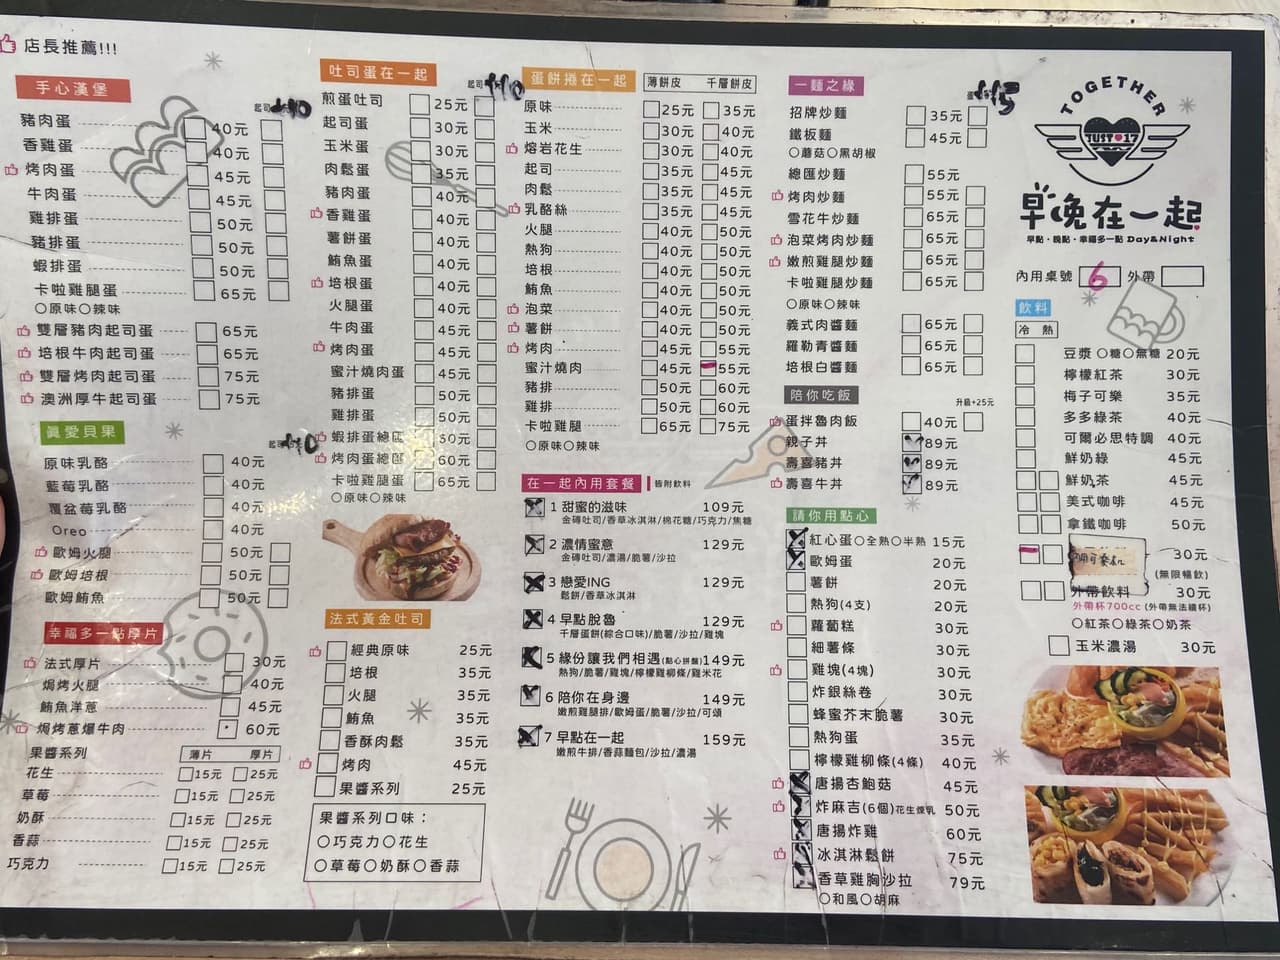 店長推薦!!!
手心漢堡
起司+10
豬肉蛋 40元
香雞蛋 40元
烤肉蛋 45元
牛肉蛋 45元
雞排蛋 50元
豬排蛋 50元
蝦排蛋 50元
卡啦雞腿蛋 65元
○原味○辣味
雙層豬肉起司蛋 65元
培根牛肉起司蛋 65元
雙層烤肉起司蛋 75元
澳洲厚牛起司蛋 75元
真愛貝果
起司+10
原味乳酪 40元
藍莓乳酪 40元
覆盆莓乳酪 40元
Oreo 40元
歐姆火腿 50元
歐姆培根 50元
歐姆鮪魚 50元
幸福多一點厚片
法式厚片 30元
焗烤火腿 40元
鮪魚洋蔥 45元
焗烤蔥爆牛肉 60元
果醬系列 薄片 厚片
花生 15元 25元
草莓 15元 25元
奶酥 15元 25元
香蒜 15元 25元
巧克力 15元 25元
吐司蛋在一起
起司+10
煎蛋吐司 25元
起司蛋 30元
玉米蛋 30元
肉鬆蛋 35元
豬肉蛋 40元
香雞蛋 40元
薯餅蛋 40元
鮪魚蛋 40元
培根蛋 40元
火腿蛋 40元
牛肉蛋 45元
烤肉蛋 45元
蜜汁燒肉蛋 45元
豬排蛋 50元
雞排蛋 50元
蝦排蛋總匯 60元
烤肉蛋總匯 60元
卡啦雞腿蛋 65元
○原味○辣味
法式黃金吐司
經典原味 25元
培根 35元
火腿 35元
鮪魚 35元
香酥肉鬆 35元
烤肉 45元
果醬系列 25元
果醬系列口味：
○巧克力○花生
○草莓○奶酥○香蒜
蛋餅捲在一起 薄餅皮 千層餅皮
原味 25元 35元
玉米 30元 40元
熔岩花生 30元 40元
起司 35元 45元
肉鬆 35元 45元
乳酪絲 35元 45元
火腿 40元 50元
熱狗 40元 50元
培根 40元 50元
鮪魚 40元 50元
泡菜 40元 50元
薯餅 40元 50元
烤肉 45元 55元
蜜汁燒肉 45元 55元
豬排 50元 60元
雞排 50元 60元
卡啦雞腿 65元 75元
○原味○辣味
在一起內用套餐 皆附飲料
1 甜蜜的滋味 109元
金磚吐司/香草冰淇淋/棉花糖/巧克力/焦糖
2 濃情蜜意 129元
金磚吐司/濃湯/脆薯/沙拉
3 戀愛ING 129元
鬆餅/香草冰淇淋
4 早點脫魯 129元
千層蛋餅(綜合口味)/脆薯/沙拉/雞塊
5 緣份讓我們相遇(點心拼盤) 149元
熱狗/脆薯/雞塊/檸檬雞柳條/雞米花
6 陪你在身邊 149元
嫩煎雞腿排/歐姆蛋/脆薯/沙拉/可頌
7 早點在一起 159元
嫩煎牛排/香蒜麵包/沙拉/濃湯
一麵之緣
+15
招牌炒麵 35元
鐵板麵 45元
○蘑菇○黑胡椒
總匯炒麵 55元
烤肉炒麵 55元
雪花牛炒麵 65元
泡菜烤肉炒麵 65元
嫩煎雞腿炒麵 65元
卡啦雞腿炒麵 65元
○原味○辣味
義式肉醬麵 65元
羅勒青醬麵 65元
培根白醬麵 65元
陪你吃飯 升級+25元
蛋拌魯肉飯 40元
親子丼 89元
壽喜豬丼 89元
壽喜牛丼 89元
請你用點心
紅心蛋○全熟○半熟 15元
歐姆蛋 20元
薯餅 20元
熱狗(4支) 20元
蘿蔔糕 30元
細薯條 30元
雞塊(4塊) 30元
炸銀絲卷 30元
蜂蜜芥末脆薯 30元
熱狗蛋 35元
檸檬雞柳條(4條) 40元
唐揚杏鮑菇 45元
炸麻吉(6個)花生煉乳 50元
唐揚炸雞 60元
冰淇淋鬆餅 75元
香草雞胸沙拉 79元
○和風○胡麻
TOGETHER
JUST 17
早晚在一起
早點・晚點・幸福多一點 Day&Night
內用桌號 6 外帶
飲料
冷 熱
豆漿 ○糖○無糖 20元
檸檬紅茶 30元
梅子可樂 35元
多多綠茶 40元
可爾必思特調 40元
鮮奶綠 45元
鮮奶茶 45元
美式咖啡 45元
拿鐵咖啡 50元
30元
(無限暢飲)
外帶飲料 30元
外帶杯700cc (外帶無法續杯)
○紅茶○綠茶○奶茶
玉米濃湯 30元